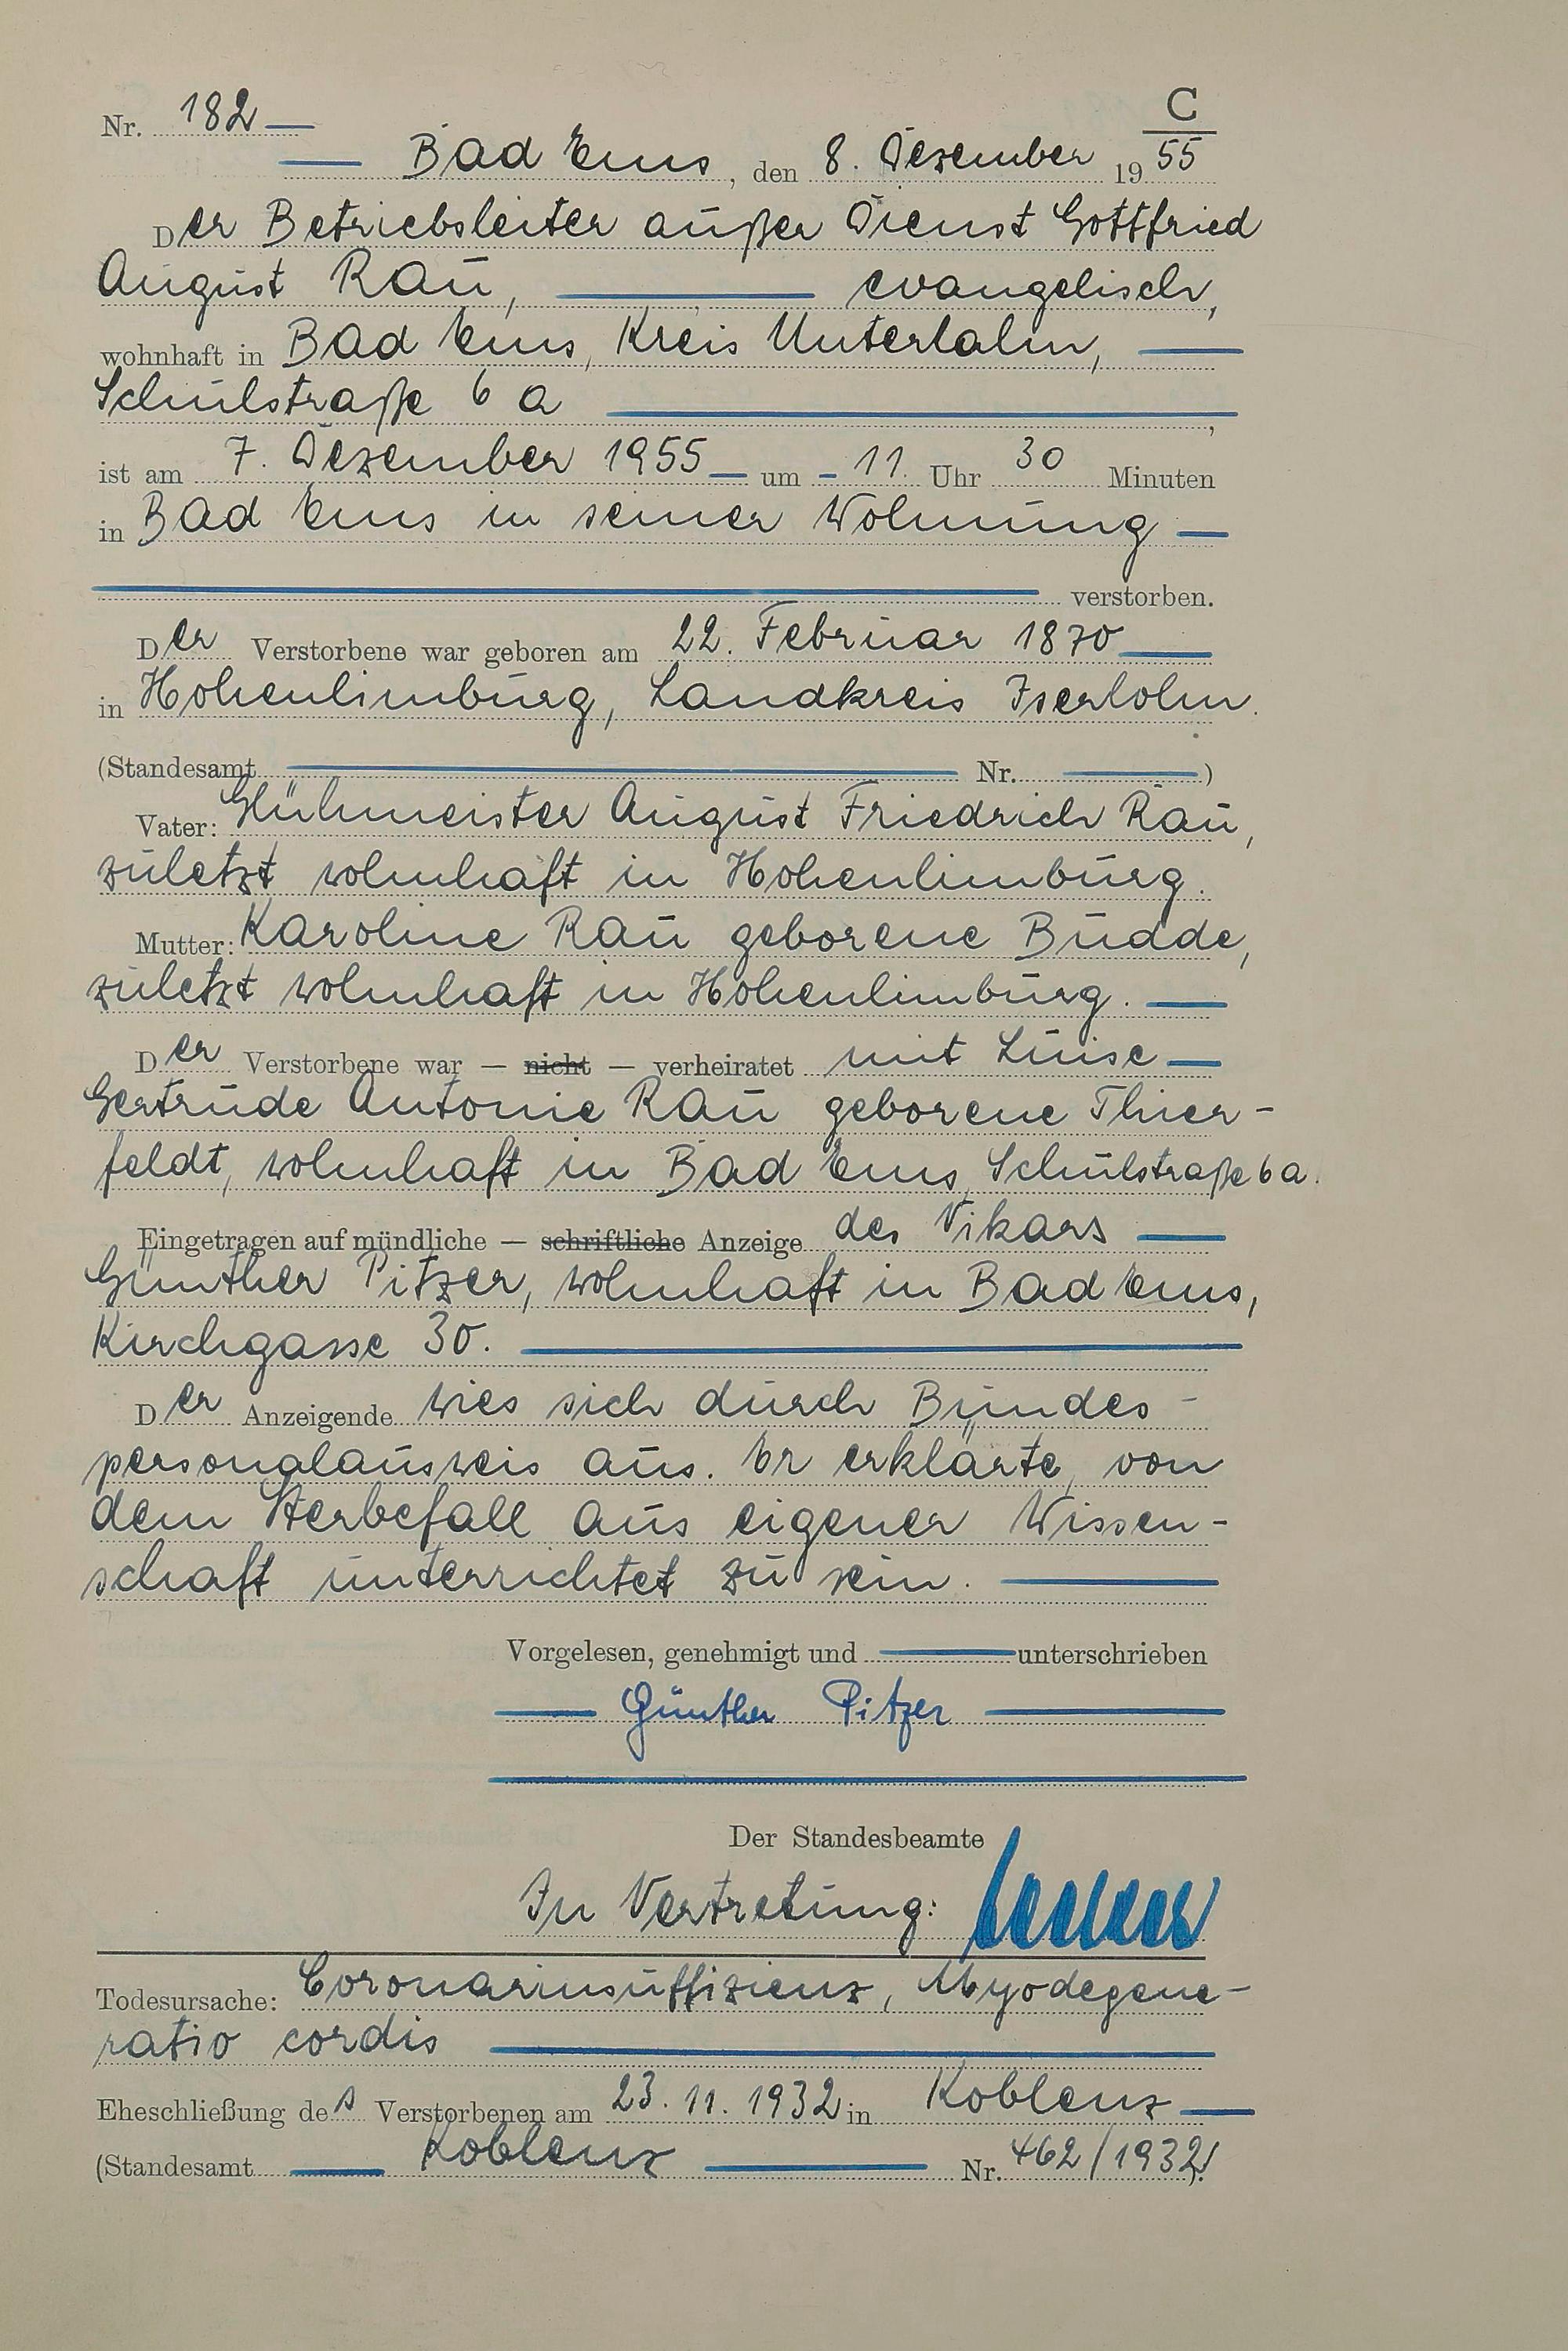 C
Nr. 182
Bad Ems, den 8. Dezember 1955
Der Betriebsleiter außer Dienst Gottfried
August Rau, evangelisch,
wohnhaft in Bad Ems, Kreis Unterlahn,
Schulstraße 6 a,
ist am 7. Dezember 1955 um 11 Uhr 30 Minuten
in Bad Ems in seiner Wohnung
verstorben.
Der Verstorbene war geboren am 22. Februar 1870
in Hohenlimburg, Landkreis Iserlohn.
(Standesamt Nr. )
Vater: Glühmeister August Friedrich Rau,
zuletzt wohnhaft in Hohenlimburg.
Mutter: Karoline Rau geborene Budde,
zuletzt wohnhaft in Hohenlimburg.
Der Verstorbene war — nicht — verheiratet mit Luise
Gertrude Antonie Rau geborene Thier-
feldt, wohnhaft in Bad Ems, Schulstraße 6 a.
Eingetragen auf mündliche — schriftliche Anzeige des Vikars
Günther Pitzer, wohnhaft in Bad Ems,
Kirchgasse 30.
Der Anzeigende wies sich durch Bundes-
personalausweis aus. Er erklärte, von
dem Sterbefall aus eigener Wissen-
schaft unterrichtet zu sein.
Vorgelesen, genehmigt und unterschrieben
Günther Pitzer
Der Standesbeamte
In Vertretung:
Todesursache: Coronarinsuffizienz, Myodegene-
ratio cordis
Eheschließung des Verstorbenen am 23.11.1932 in Koblenz
(Standesamt Koblenz Nr. 462/1932).